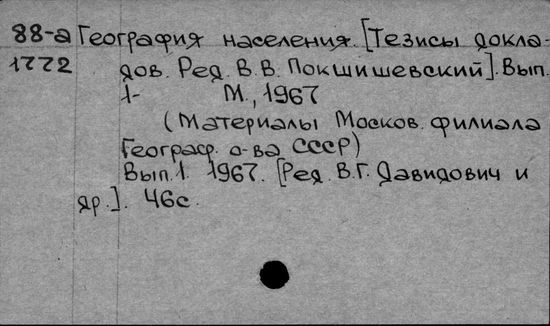 88-а География населения. [Тезисы докла-
1772 дов. Ред. В.В. Покшишевский]. Вып.
1- М., 1967
(Материалы Москов. филиала
Географ. о-ва СССР)
Вып.1. 1967. [Ред. В.Г. Давидович и
др.]. 46с.